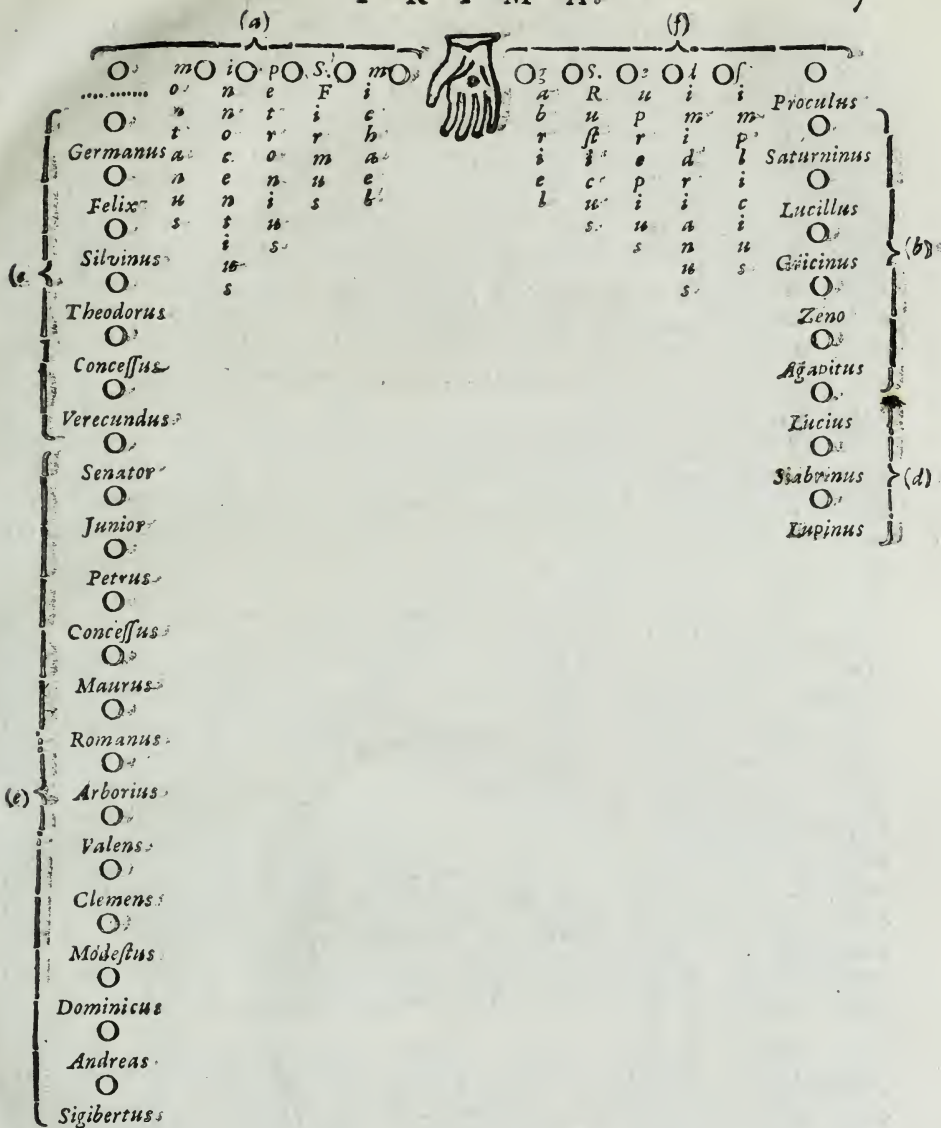 P R I M A.
(a)
(f)
montanus
innocentius
petronius
S. Firmus
michael
gabriel
S. Ruſticus
euprepius
limidrianus
ſimplicius
Germanus
Felix
Silvinus
Theodorus
Conceſſus
Verecundus
Senator
Junior
Petrus
Conceſſus
Maurus
Romanus
(e)
Arborius
Valens
Clemens
Modeſtus
Dominicus
Andreas
Sigibertus
Proculus
Saturninus
Lucillus
(b)
Gricinus
Zeno
Agapitus
Lucius
Siabrinus
(d)
Lupinus